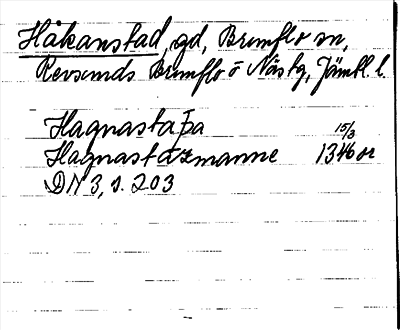 Håkanstad, gd, Brunflo sn,
Revsunds Brunflo o Näs tg, Jämtl. l.
Hagnastaþa 15/3
Hagnastazmanne 1346 or
DN 3, s. 203